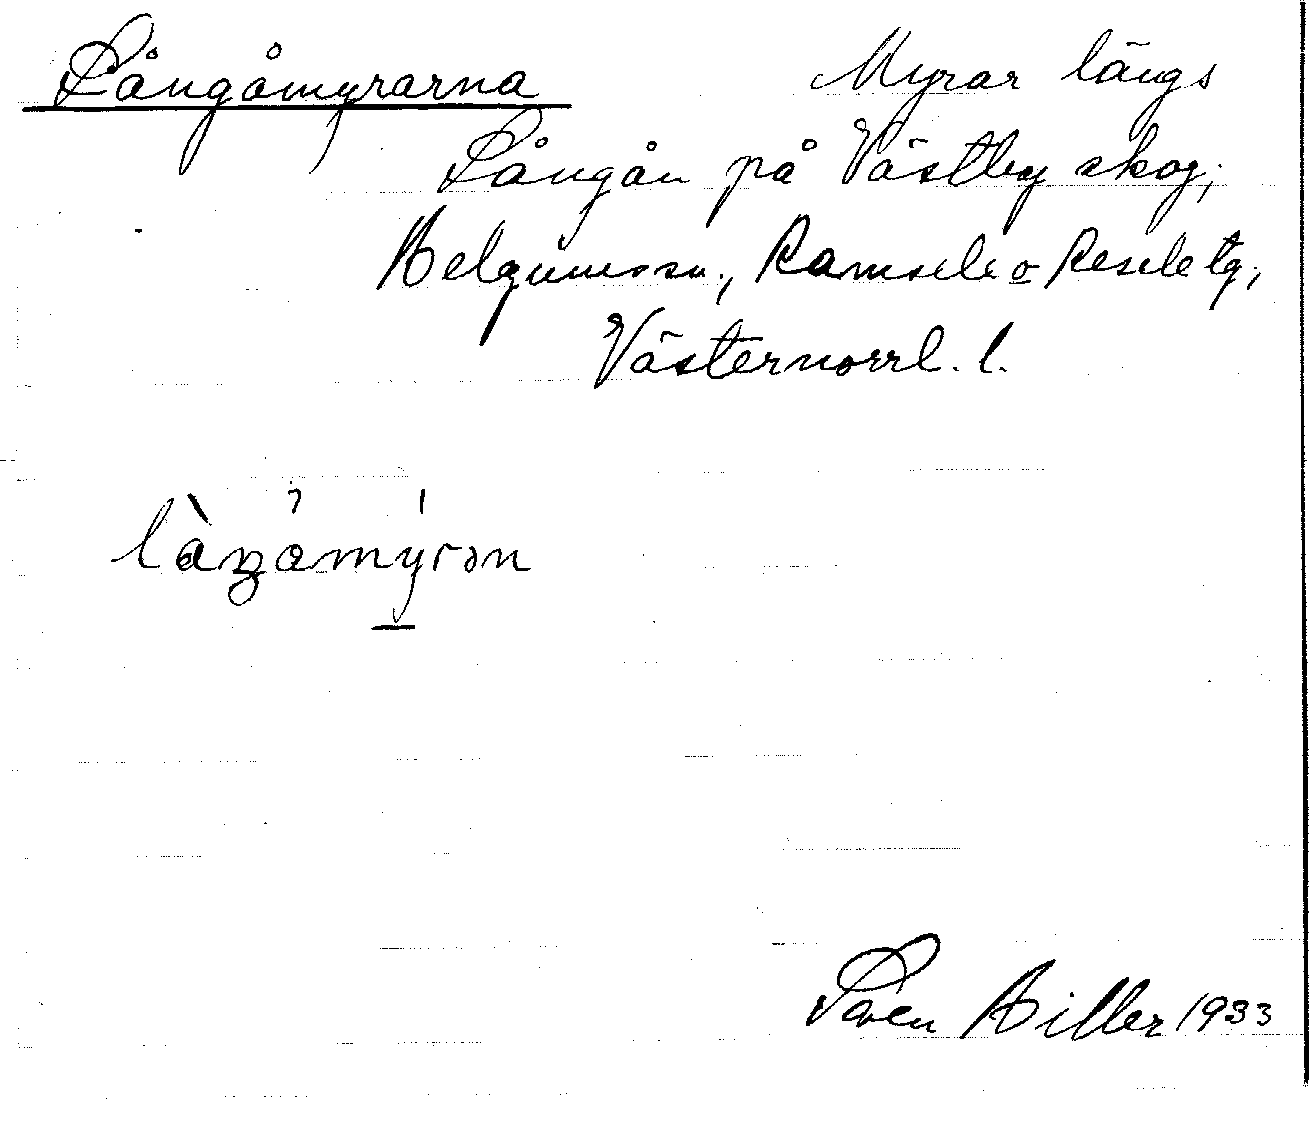 Långåmyrarna Myrar längs
Långån på Västby skog,
Helgumssn., Ramsele o Resele tg,
Västernorrl. l.
Sven Hiller 1933